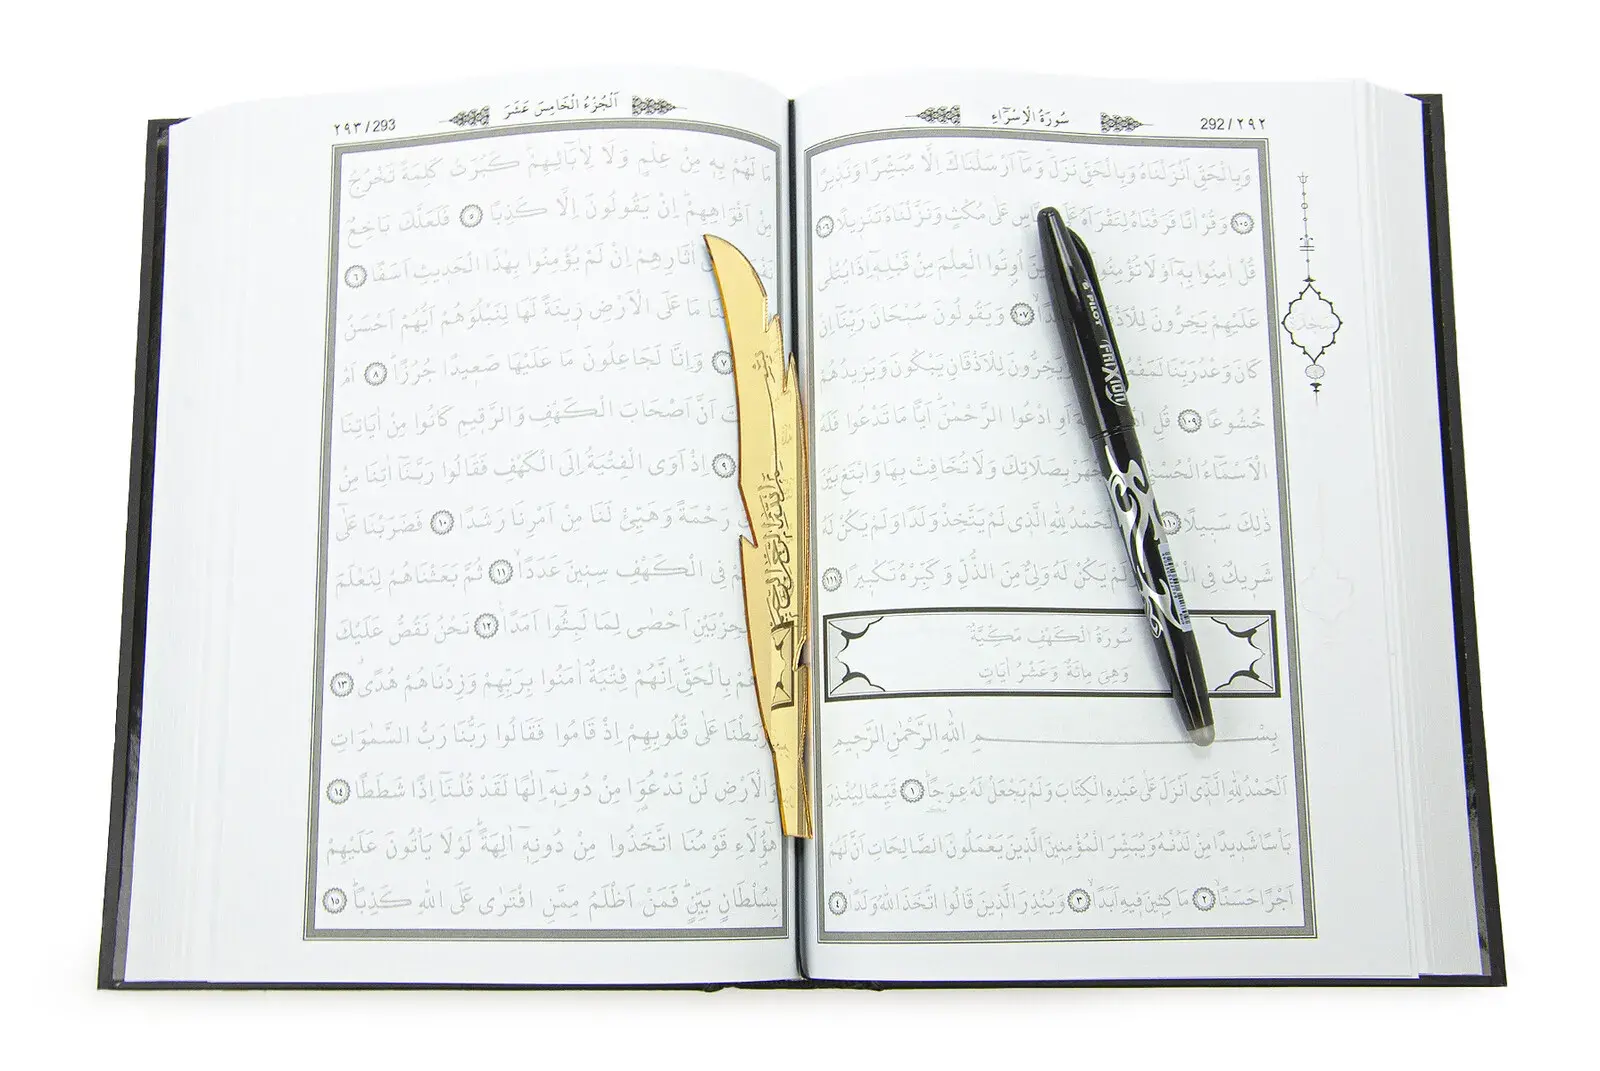 292/٢٩٢
سُورَةُ الْاِسْرَٓاءِ
وَبِالْحَقِّ اَنْزَلْنَاهُ وَبِالْحَقِّ نَزَلَ وَمَٓا اَرْسَلْنَاكَ اِلَّا مُبَشِّرًا وَنَذِيرًا
١٠٥ وَقُرْاٰنًا فَرَقْنَاهُ لِتَقْرَاَهُ عَلٰى مُكْثٍ وَنَزَّلْنَاهُ تَنْزِيلًا ١٠٦
قُلْ اٰمِنُوا بِهٓ اَوْ لَا تُؤْمِنُوا اُو۫تُوا الْعِلْمَ مِنْ قَبْلِهٓ اِذَا يُتْلٰى
عَلَيْهِمْ يَخِرُّونَ ١٠٧ وَيَقُولُونَ سُبْحَانَ رَبِّنَٓا اِنْ
كَانَ وَعْدُ رَبِّنَا لِلْاَذْقَانِ يَبْكُونَ وَيَزِيدُهُمْ
خُشُوعًا ١٠٩ قُلِ اَوِ ادْعُوا الرَّحْمٰنَ اَيًّا مَا تَدْعُوا فَلَهُ
الْاَسْمَٓاءُ الْحُسْنٰى بِصَلَاتِكَ وَلَا تُخَافِتْ بِهَا وَابْتَغِ بَيْنَ
ذٰلِكَ سَبِيلًا ١١٠ الْحَمْدُ لِلّٰهِ الَّذِي لَمْ يَتَّخِذْ وَلَدًا وَلَمْ يَكُنْ لَهُ
شَرِيكٌ فِي يَكُنْ لَهُ وَلِيٌّ مِنَ الذُّلِّ وَكَبِّرْهُ تَكْبِيرًا ١١١
سُورَةُ الْكَهْفِ مَكِّيَّةٌ
وَهِيَ مِائَةٌ وَعَشْرُ اٰيَاتٍ
بِسْمِ اللّٰهِ الرَّحْمٰنِ الرَّحِيمِ
اَلْحَمْدُ لِلّٰهِ الَّذٓي اَنْزَلَ عَلٰى عَبْدِهِ الْكِتَابَ وَلَمْ يَجْعَلْ لَهُ عِوَجًا ١ قَيِّمًا لِيُنْذِرَ
بَأْسًا شَدِيدًا مِنْ لَدُنْهُ وَيُبَشِّرَ الْمُؤْمِنِينَ الَّذِينَ يَعْمَلُونَ الصَّالِحَاتِ اَنَّ لَهُمْ
اَجْرًا حَسَنًا ٢ مَاكِثِينَ فِيهِ اَبَدًا ٣ وَيُنْذِرَ الَّذِينَ قَالُوا اتَّخَذَ اللّٰهُ وَلَدًا ٤
PILOT
FRIXION
اَلْجُزْءُ الْخَامِسَ عَشَرَ
٢٩٣/293
مَا لَهُمْ بِهِ مِنْ عِلْمٍ وَلَا لِاٰبَٓائِهِمْ كَبُرَتْ كَلِمَةً تَخْرُجُ
مِنْ اَفْوَاهِهِمْ اِنْ يَقُولُونَ اِلَّا كَذِبًا ٥ فَلَعَلَّكَ بَاخِعٌ
اٰثَارِهِمْ اِنْ لَمْ يُؤْمِنُوا بِهٰذَا الْحَدِيثِ اَسَفًا ٦
مَا عَلَى الْاَرْضِ زِينَةً لَهَا لِنَبْلُوَهُمْ اَيُّهُمْ اَحْسَنُ
٧ وَاِنَّا لَجَاعِلُونَ مَا عَلَيْهَا صَعِيدًا جُرُزًا ٨ اَمْ
اَنَّ اَصْحَابَ الْكَهْفِ وَالرَّقِيمِ كَانُوا مِنْ اٰيَاتِنَا
٩ اِذْ اَوَى الْفِتْيَةُ اِلَى الْكَهْفِ فَقَالُوا رَبَّنَٓا اٰتِنَا مِنْ
رَحْمَةً وَهَيِّئْ لَنَا مِنْ اَمْرِنَا رَشَدًا ١٠ فَضَرَبْنَا عَلٰٓى
فِي الْكَهْفِ سِنِينَ عَدَدًا ١١ ثُمَّ بَعَثْنَاهُمْ لِنَعْلَمَ
الْحِزْبَيْنِ اَحْصٰى لِمَا لَبِثُٓوا اَمَدًا ١٢ نَحْنُ نَقُصُّ عَلَيْكَ
بِالْحَقِّ اِنَّهُمْ فِتْيَةٌ اٰمَنُوا بِرَبِّهِمْ وَزِدْنَاهُمْ هُدًى ١٣
وَرَبَطْنَا عَلٰى قُلُوبِهِمْ اِذْ قَامُوا فَقَالُوا رَبُّنَا رَبُّ السَّمٰوَاتِ
وَالْاَرْضِ لَنْ نَدْعُوَ۬ا مِنْ دُونِهٓ اِلٰهًا لَقَدْ قُلْنَٓا اِذًا شَطَطًا ١٤
هٰٓؤُ۬لَٓاءِ قَوْمُنَا اتَّخَذُوا مِنْ دُونِهٓ اٰلِهَةً لَوْلَا يَأْتُونَ عَلَيْهِمْ
بِسُلْطَانٍ بَيِّنٍ فَمَنْ اَظْلَمُ مِمَّنِ افْتَرٰى عَلَى اللّٰهِ كَذِبًا ١٥